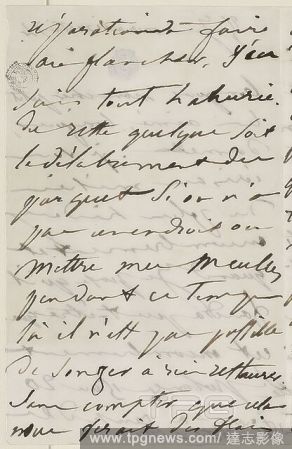 réparations à faire
au plancher. J'en
suis tout ahurie.
Du reste quelque soit
le délabrement du
parquet si on n'a
pas un endroit où
mettre mes meubles
pendant ce temps
là il n'est pas possible
de songer à rien restaurer
sans compter que cela
nous ferait des
www.tpgnews.com / 達志影像